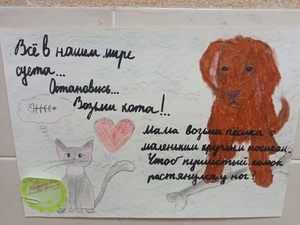 Всё в нашем мире
суета...
Остановись...
Возьми кота!..
Мама возьми пёсика с
маленьким круглым носиком.
Чтоб пушистый комок
растянулся у ног!